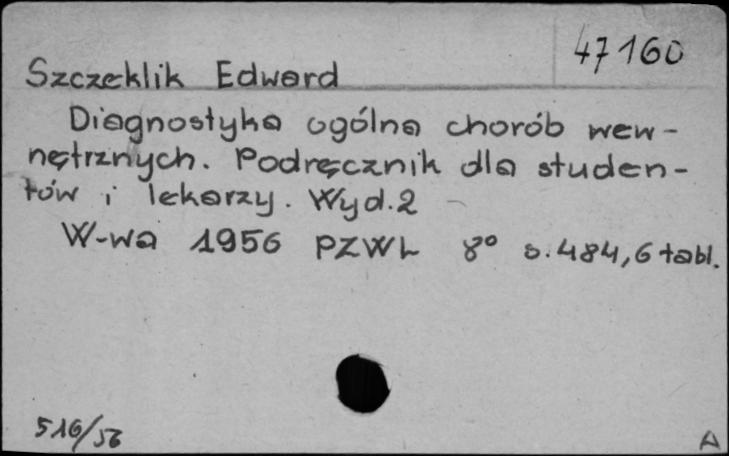 47160
Szczeklik Edward
Diagnostyka ogólna chorób wew-
nętrznych. Podręcznik dla studen-
tów i lekarzy. Wyd. 2
W-wa 1956 PZWL 8° s. 484, 6 tabl.
516/56
A